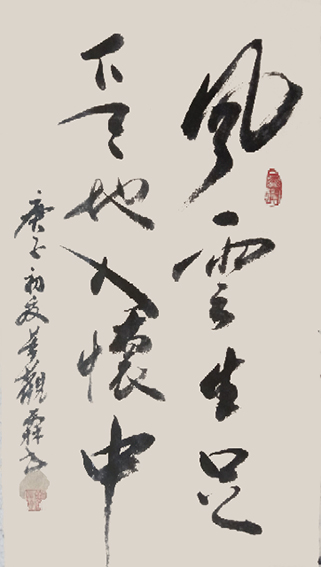 風雲生足
下天地入懷中
庚子初夏觀